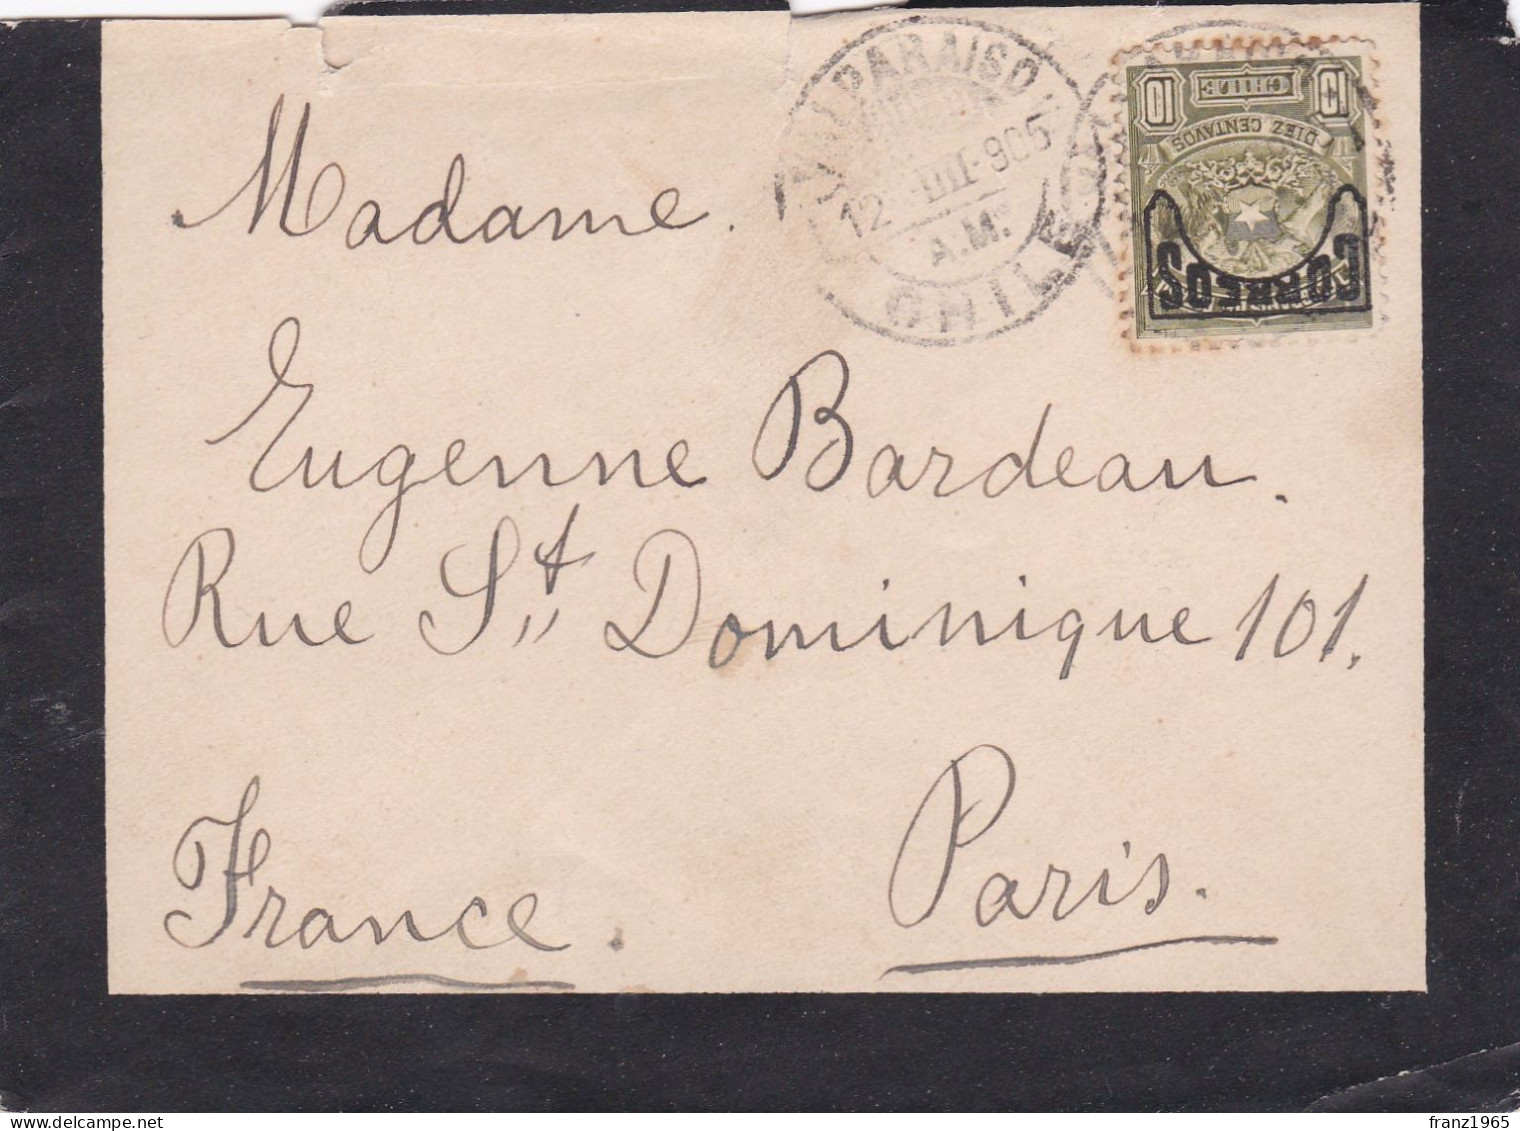 VALPARAISO
12-VIII-905
A.M.
CHILE
10 CHILE 10
DIEZ CENTAVOS
CORREOS
Madame.
Eugenne Bardeau.
Rue St. Dominique 101.
Paris.
France.
franz1965